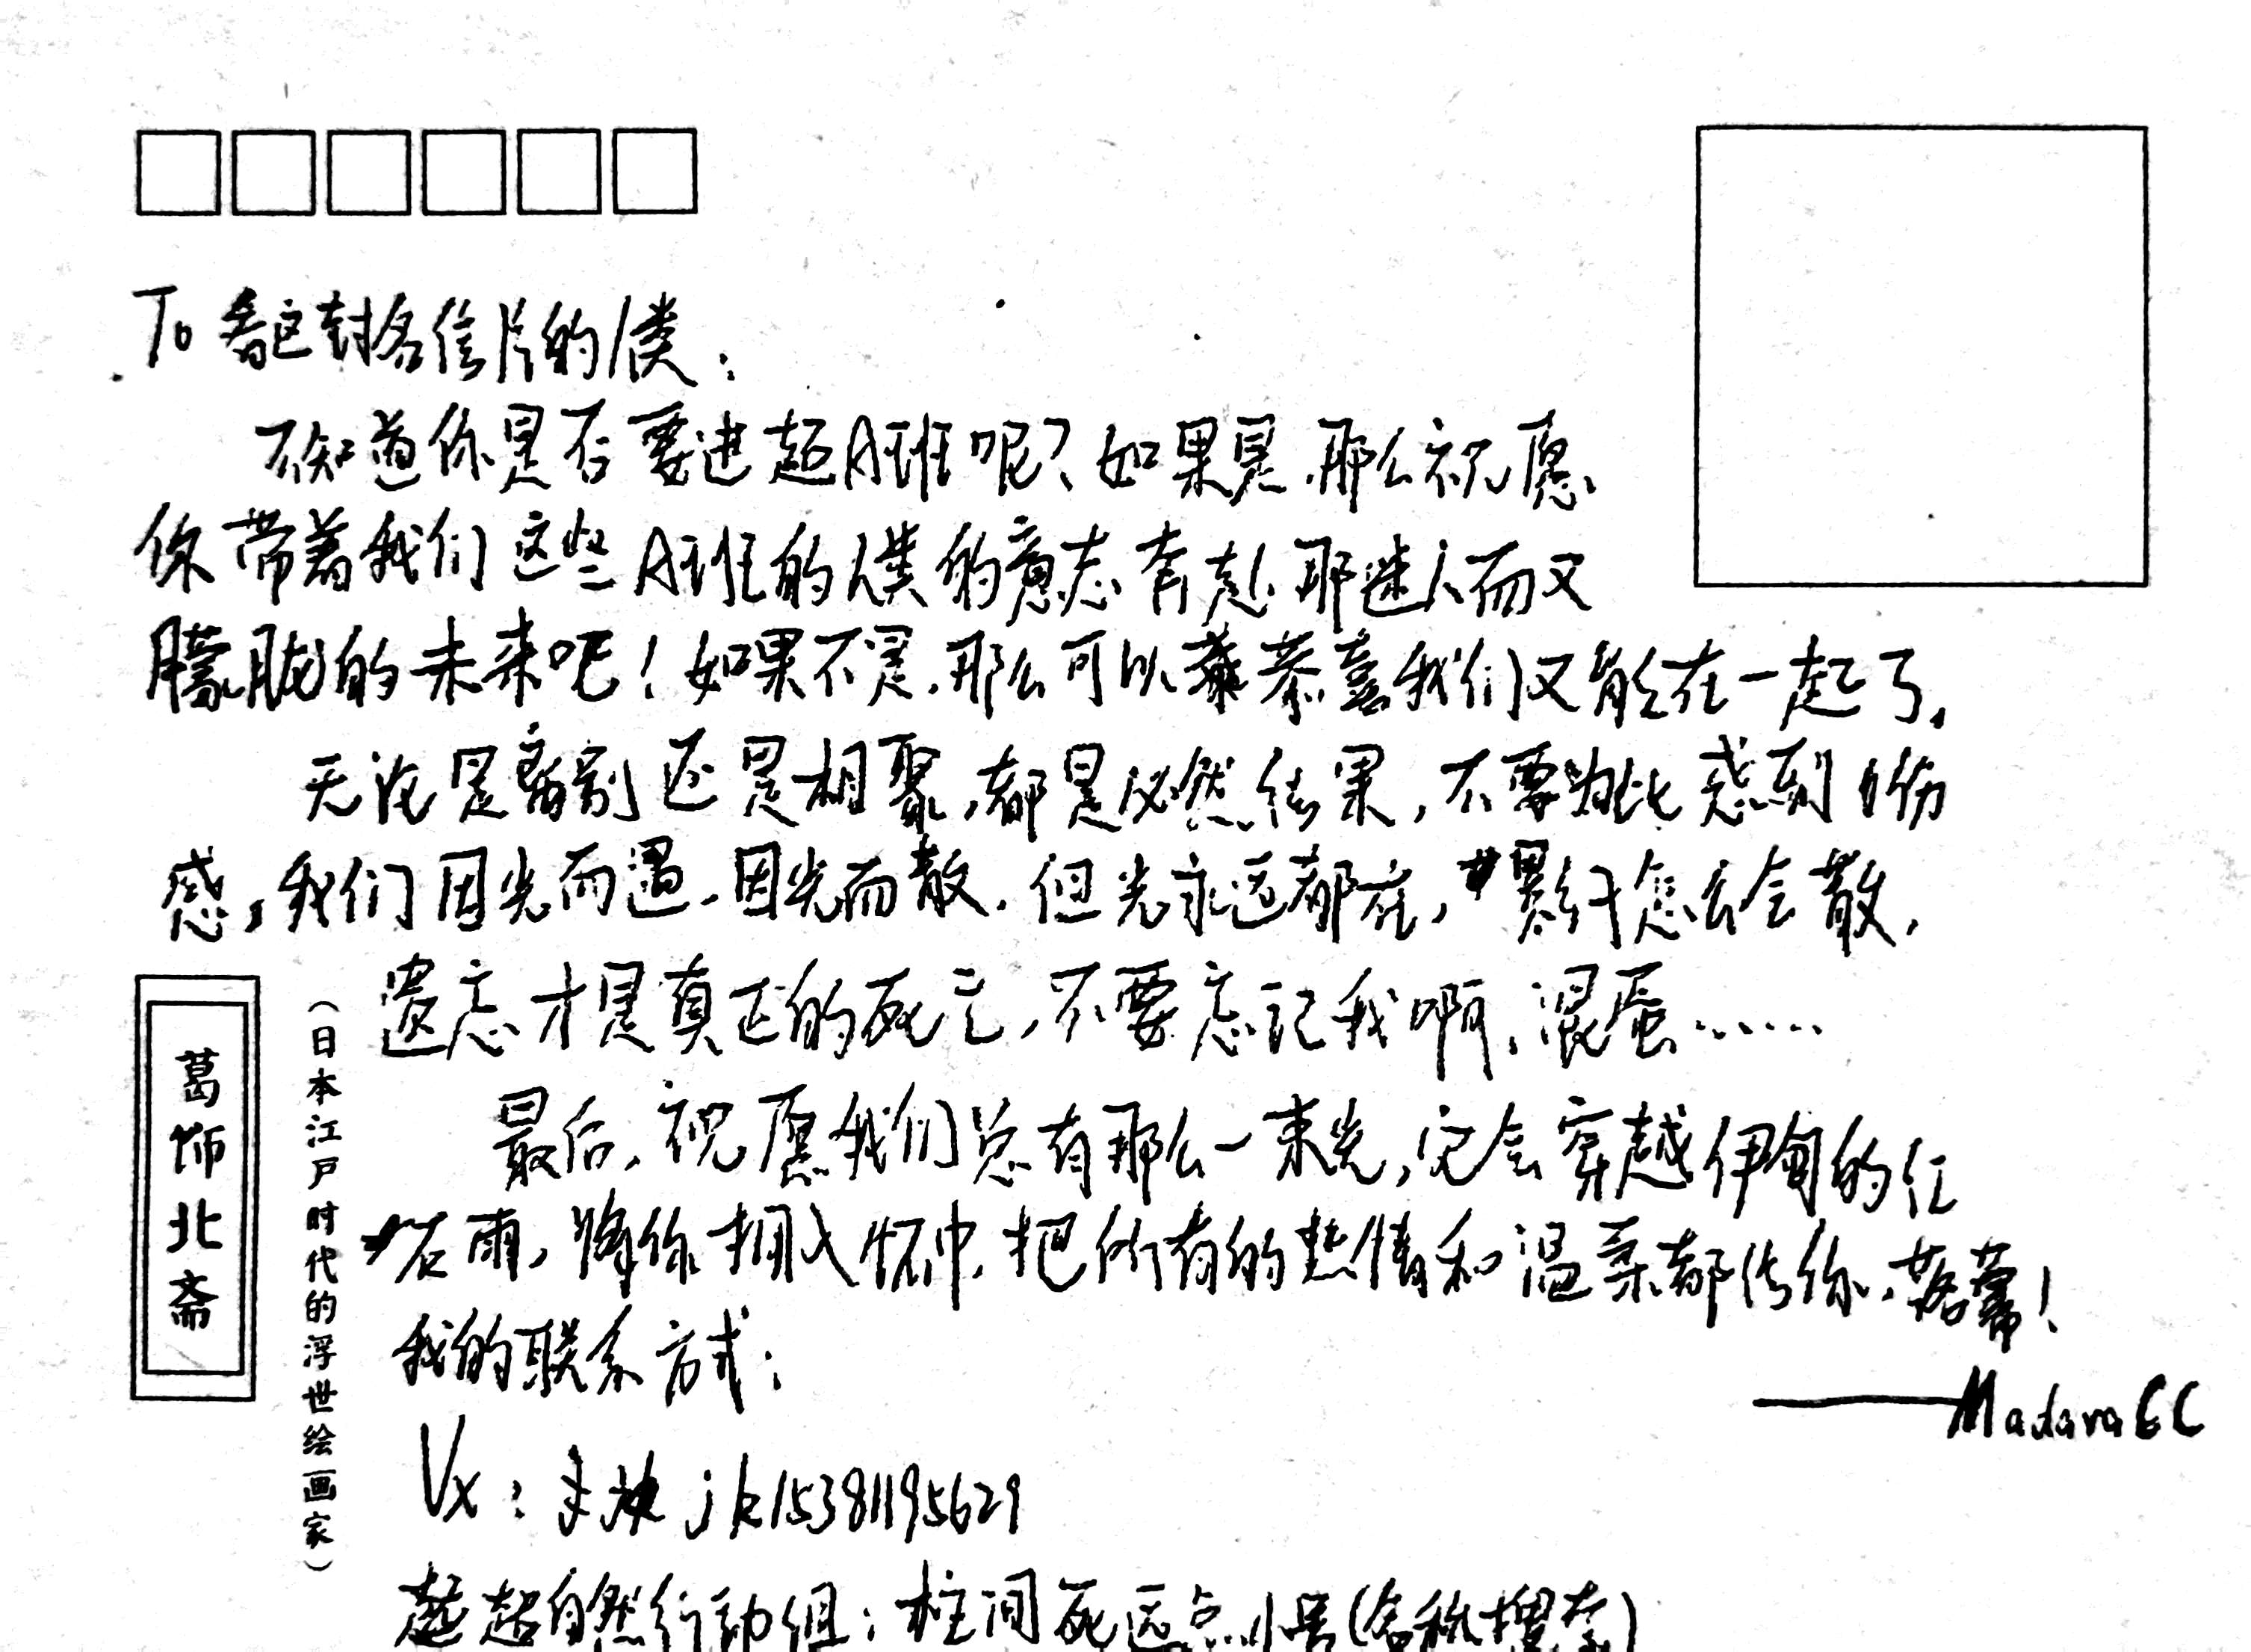 To 看这封名信片的僕：
不知道你是否要进超A班呢？如果是，那么祝愿
你带着我们这些A班的僕的意志奔赴那迷人而又
朦胧的未来吧！如果不是，那么可以恭喜我们又能在一起了，
无论是离别还是相聚，都是必然结果，不要为此感到伤
感，我们因光而遇，因光而散，但光永远都在，累纟怎么会散，
遗忘才是真正的死亡，不要忘记我啊，混蛋……
最后，祝愿我们总有那么一束光，它会穿越伊甸的
雨，将你拥入怀中，把所有的热情和温柔都给你，落幕！
——Madara CC
我的联系方式：
Vx：jk15381195629
超自然行动组：柱间死远点小号(名称搜索)
葛饰北斋
(日本江户时代的浮世绘画家)